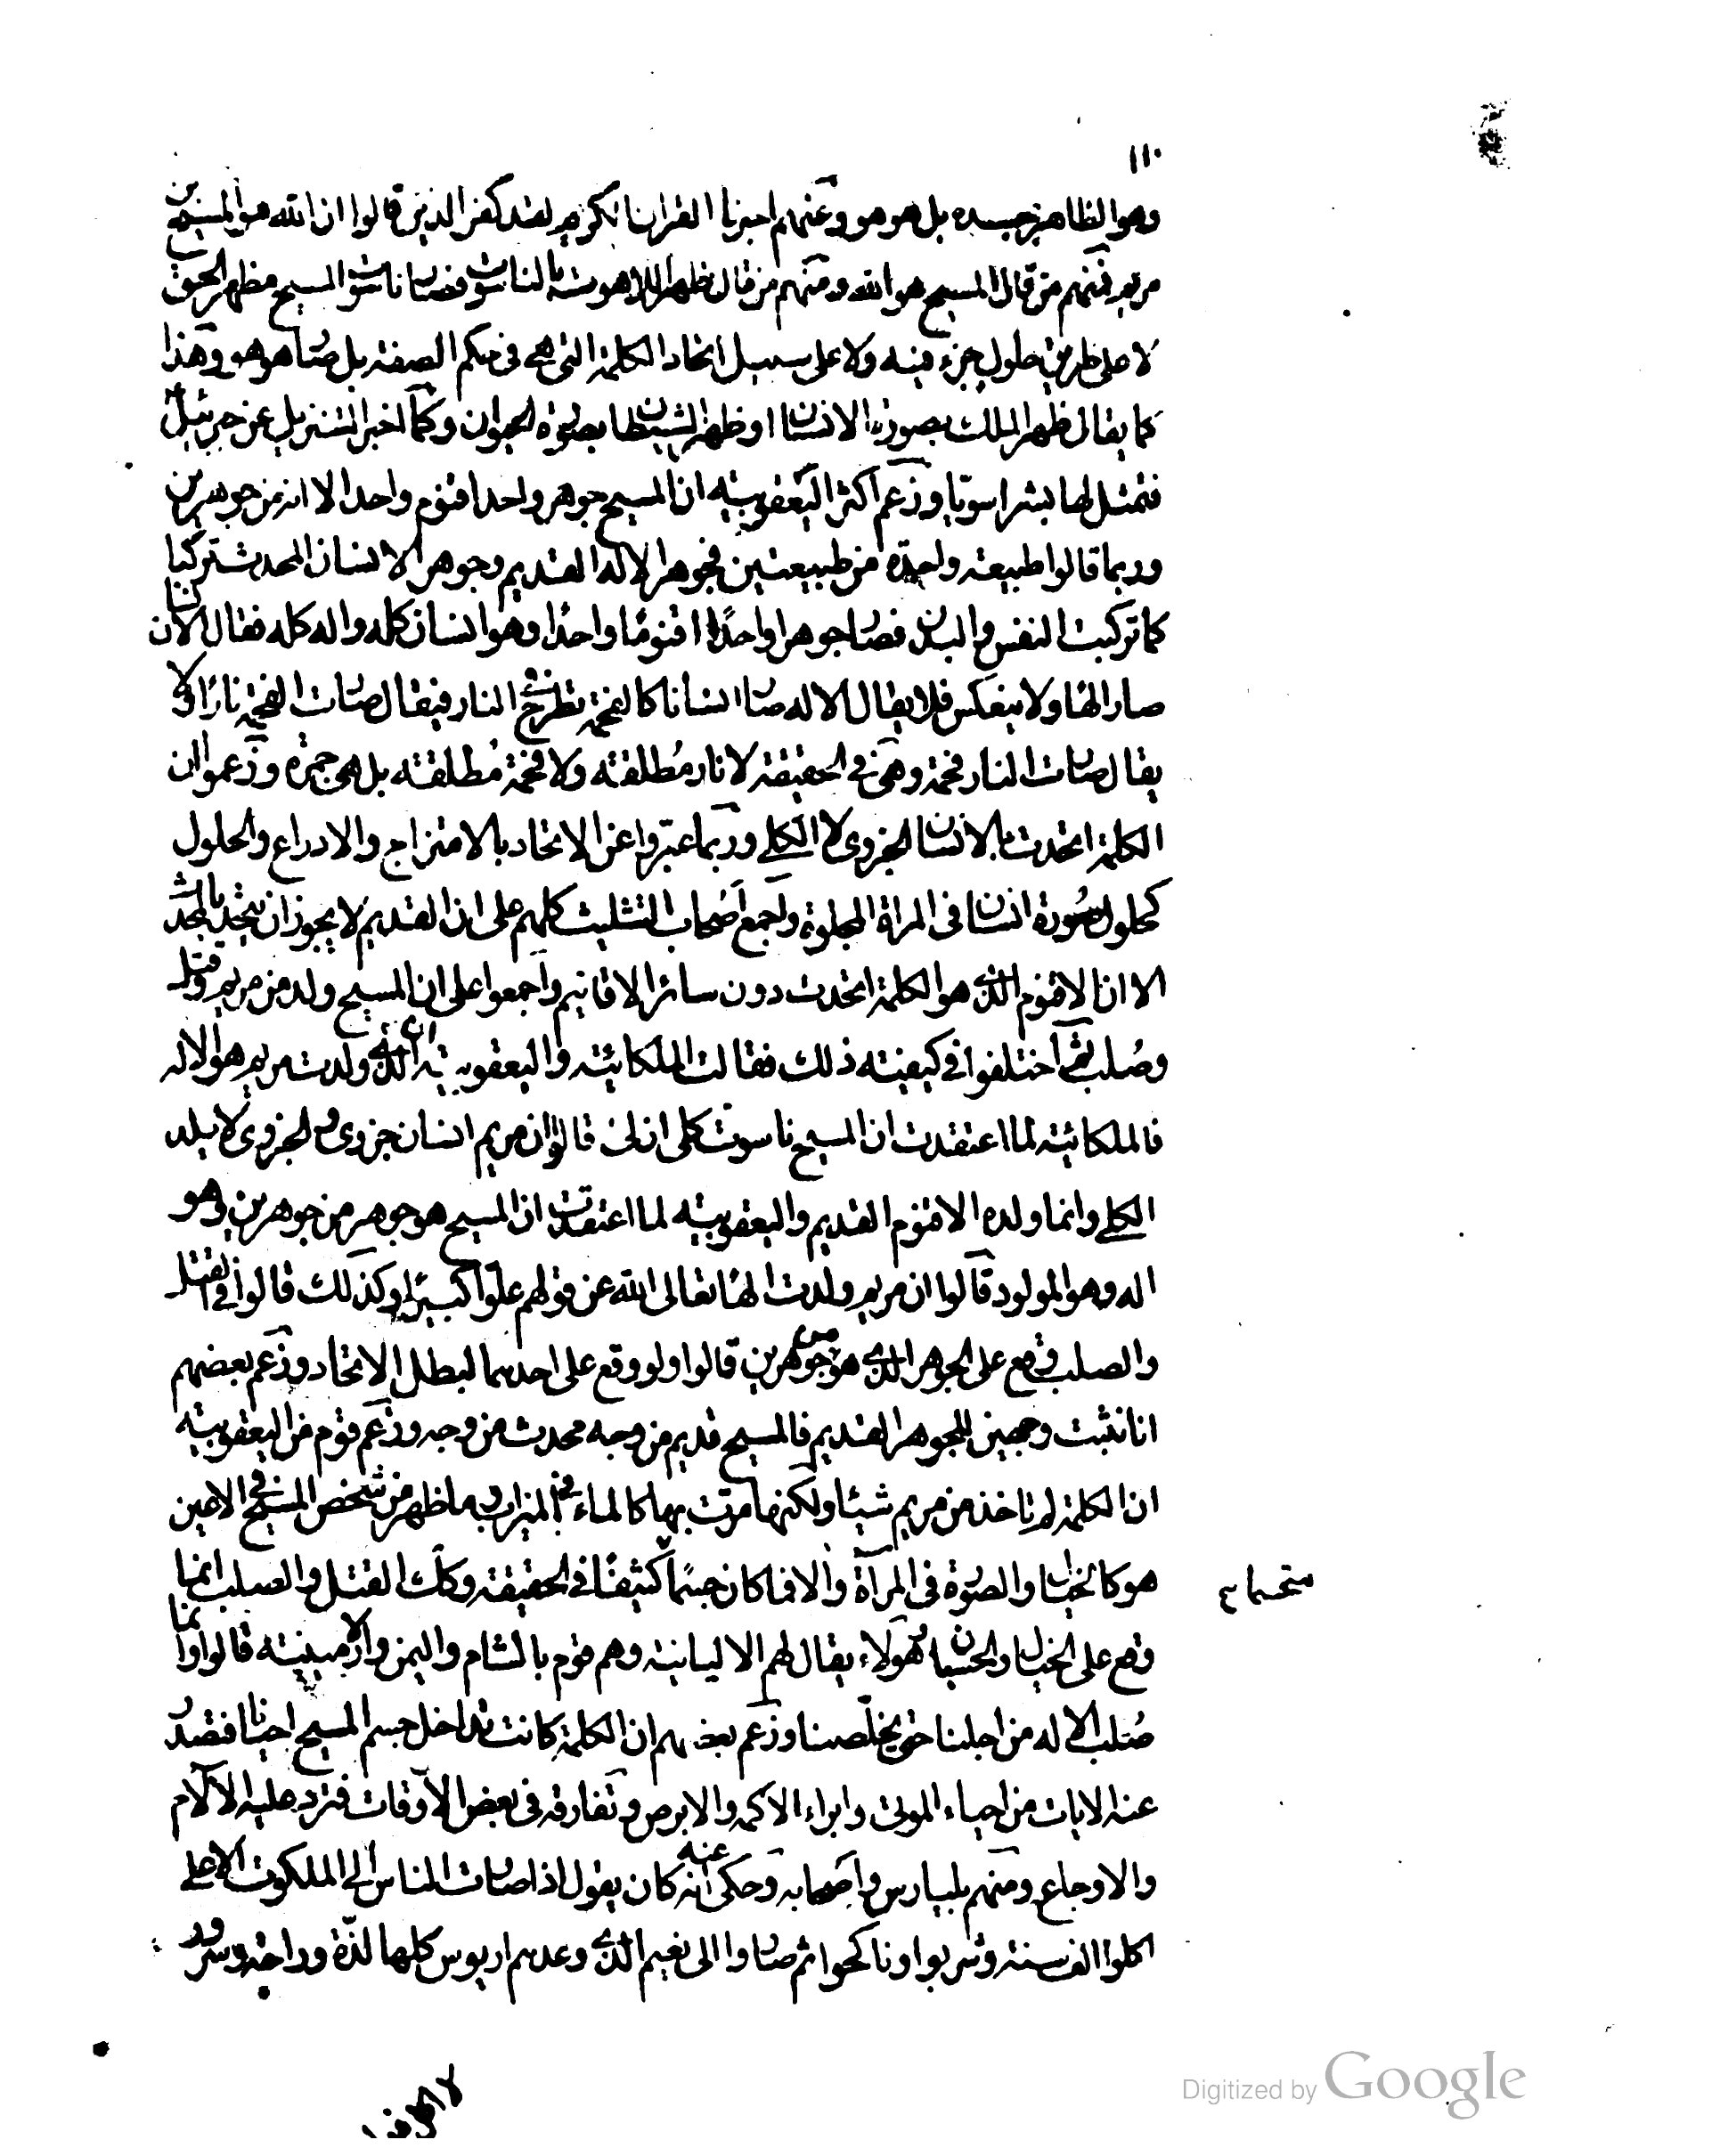 ١١٠
وهو الظاهر بجسده بل هو هو وعنهم اخبرنا القران الكريم لقد كفر الذين قالوا ان الله هو المسيح بن
مريم فمنهم من قال المسيح هو الله ومنهم من قال ظهر اللاهوت بالناسوت فصار ناسوت المسيح مظهر الحق
لا على طريق حلول جزء فيه ولا على سبيل اتحاد الكلمة التي هي في حكم الصفة بل صار هو هو وهذا
كما يقال ظهر الملك بصورة الانسان او ظهر الشيطان بصورة الحيوان وكما اخبر التنزيل عن جبرئيل
فتمثل لها بشرا سويا وزعم اكثر اليعقوبية ان المسيح جوهر واحد اقنوم واحد الا انه من جوهرين
وربما قالوا طبيعة واحدة من طبيعتين فجوهر الاله القديم وجوهر الانسان المحدث تركبا
كما تركبت النفس والبدن فصار جوهرا واحدا اقنوما واحدا وهو انسان كله واله كله فقال الانسان
صار الها ولا ينعكس فلا يقال الاله صار انسانا كالفحمة تطرح في النار فيقال صارت الفحمة نارا ولا
يقال صارت النار فحمة وهي في الحقيقة لا نار مطلقة ولا فحمة مطلقة بل هي جمرة وزعموا ان
الكلمة اتحدت بالانسان الجزوى لا الكلي وربما عبروا عن الاتحاد بالامتزاج والادراع والحلول
كحلول صورة انسان في المراة المجلوة واجمع اصحاب التثليث كلهم على ان القديم لا يجوز ان يتحد بالمحدث
الا ان الاقنوم الذي هو الكلمة اتحدت دون سائر الاقانيم واجمعوا على ان المسيح ولد من مريم وقتل
وصلب ثم اختلفوا في كيفية ذلك فقالت الملكائية واليعقوبية ان الذي ولدت مريم هو الاله
فالملكائية لما اعتقدت ان المسيح ناسوت كلى ازلى قالوا ان مريم انسان جزوى والجزوى لا يلد
الكلي وانما ولده الاقنوم القديم واليعقوبية لما اعتقدت ان المسيح هو جوهر من جوهرين وهو
اله وهو المولود قالوا ان مريم ولدت الها تعالى الله عن قولهم علوا كبيرا وكذلك قالوا في القتل
والصلب وقع على الجوهر الذي هو من جوهرين قالوا ولو وقع على احدهما لبطل الاتحاد وزعم بعضهم
انا نثبت وجهين للجوهر القديم فالمسيح قديم من وجه محدث من وجه وزعم قوم من اليعقوبية
ان الكلمة لم تاخذ من مريم شيئا ولكنها مرت بها كالماء في الميزاب وما ظهر من شخص المسيح في الاعين
هو كالخيال والصورة في المرآة والا فما كان جسما كثيفا في الحقيقة وكذلك القتل والصلب انما
وقع على الخيال والحسبان وهولاء يقال لهم الاليانية وهم قوم بالشام واليمن والارمينية قالوا وانما
صلب الاله من اجلنا حتى يخلصنا وزعم بعضهم ان الكلمة كانت تداخل جسم المسيح احيانا فتصدر
عنه الايات من احياء الموتى وابراء الاكمه والابرص وتفارقه في بعض الاوقات فترد عليه الآلام
والاوجاع ومنهم بليارس واصحابه وحكى عنه انه كان يقول اذا صارت الناس الى الملكوت الاعلى
اكلوا الف سنة وشربوا وناكحوا ثم صاروا الى نعيم الذي وعدهم اريوس كلها لذة وراحة وسرور
Digitized by Google